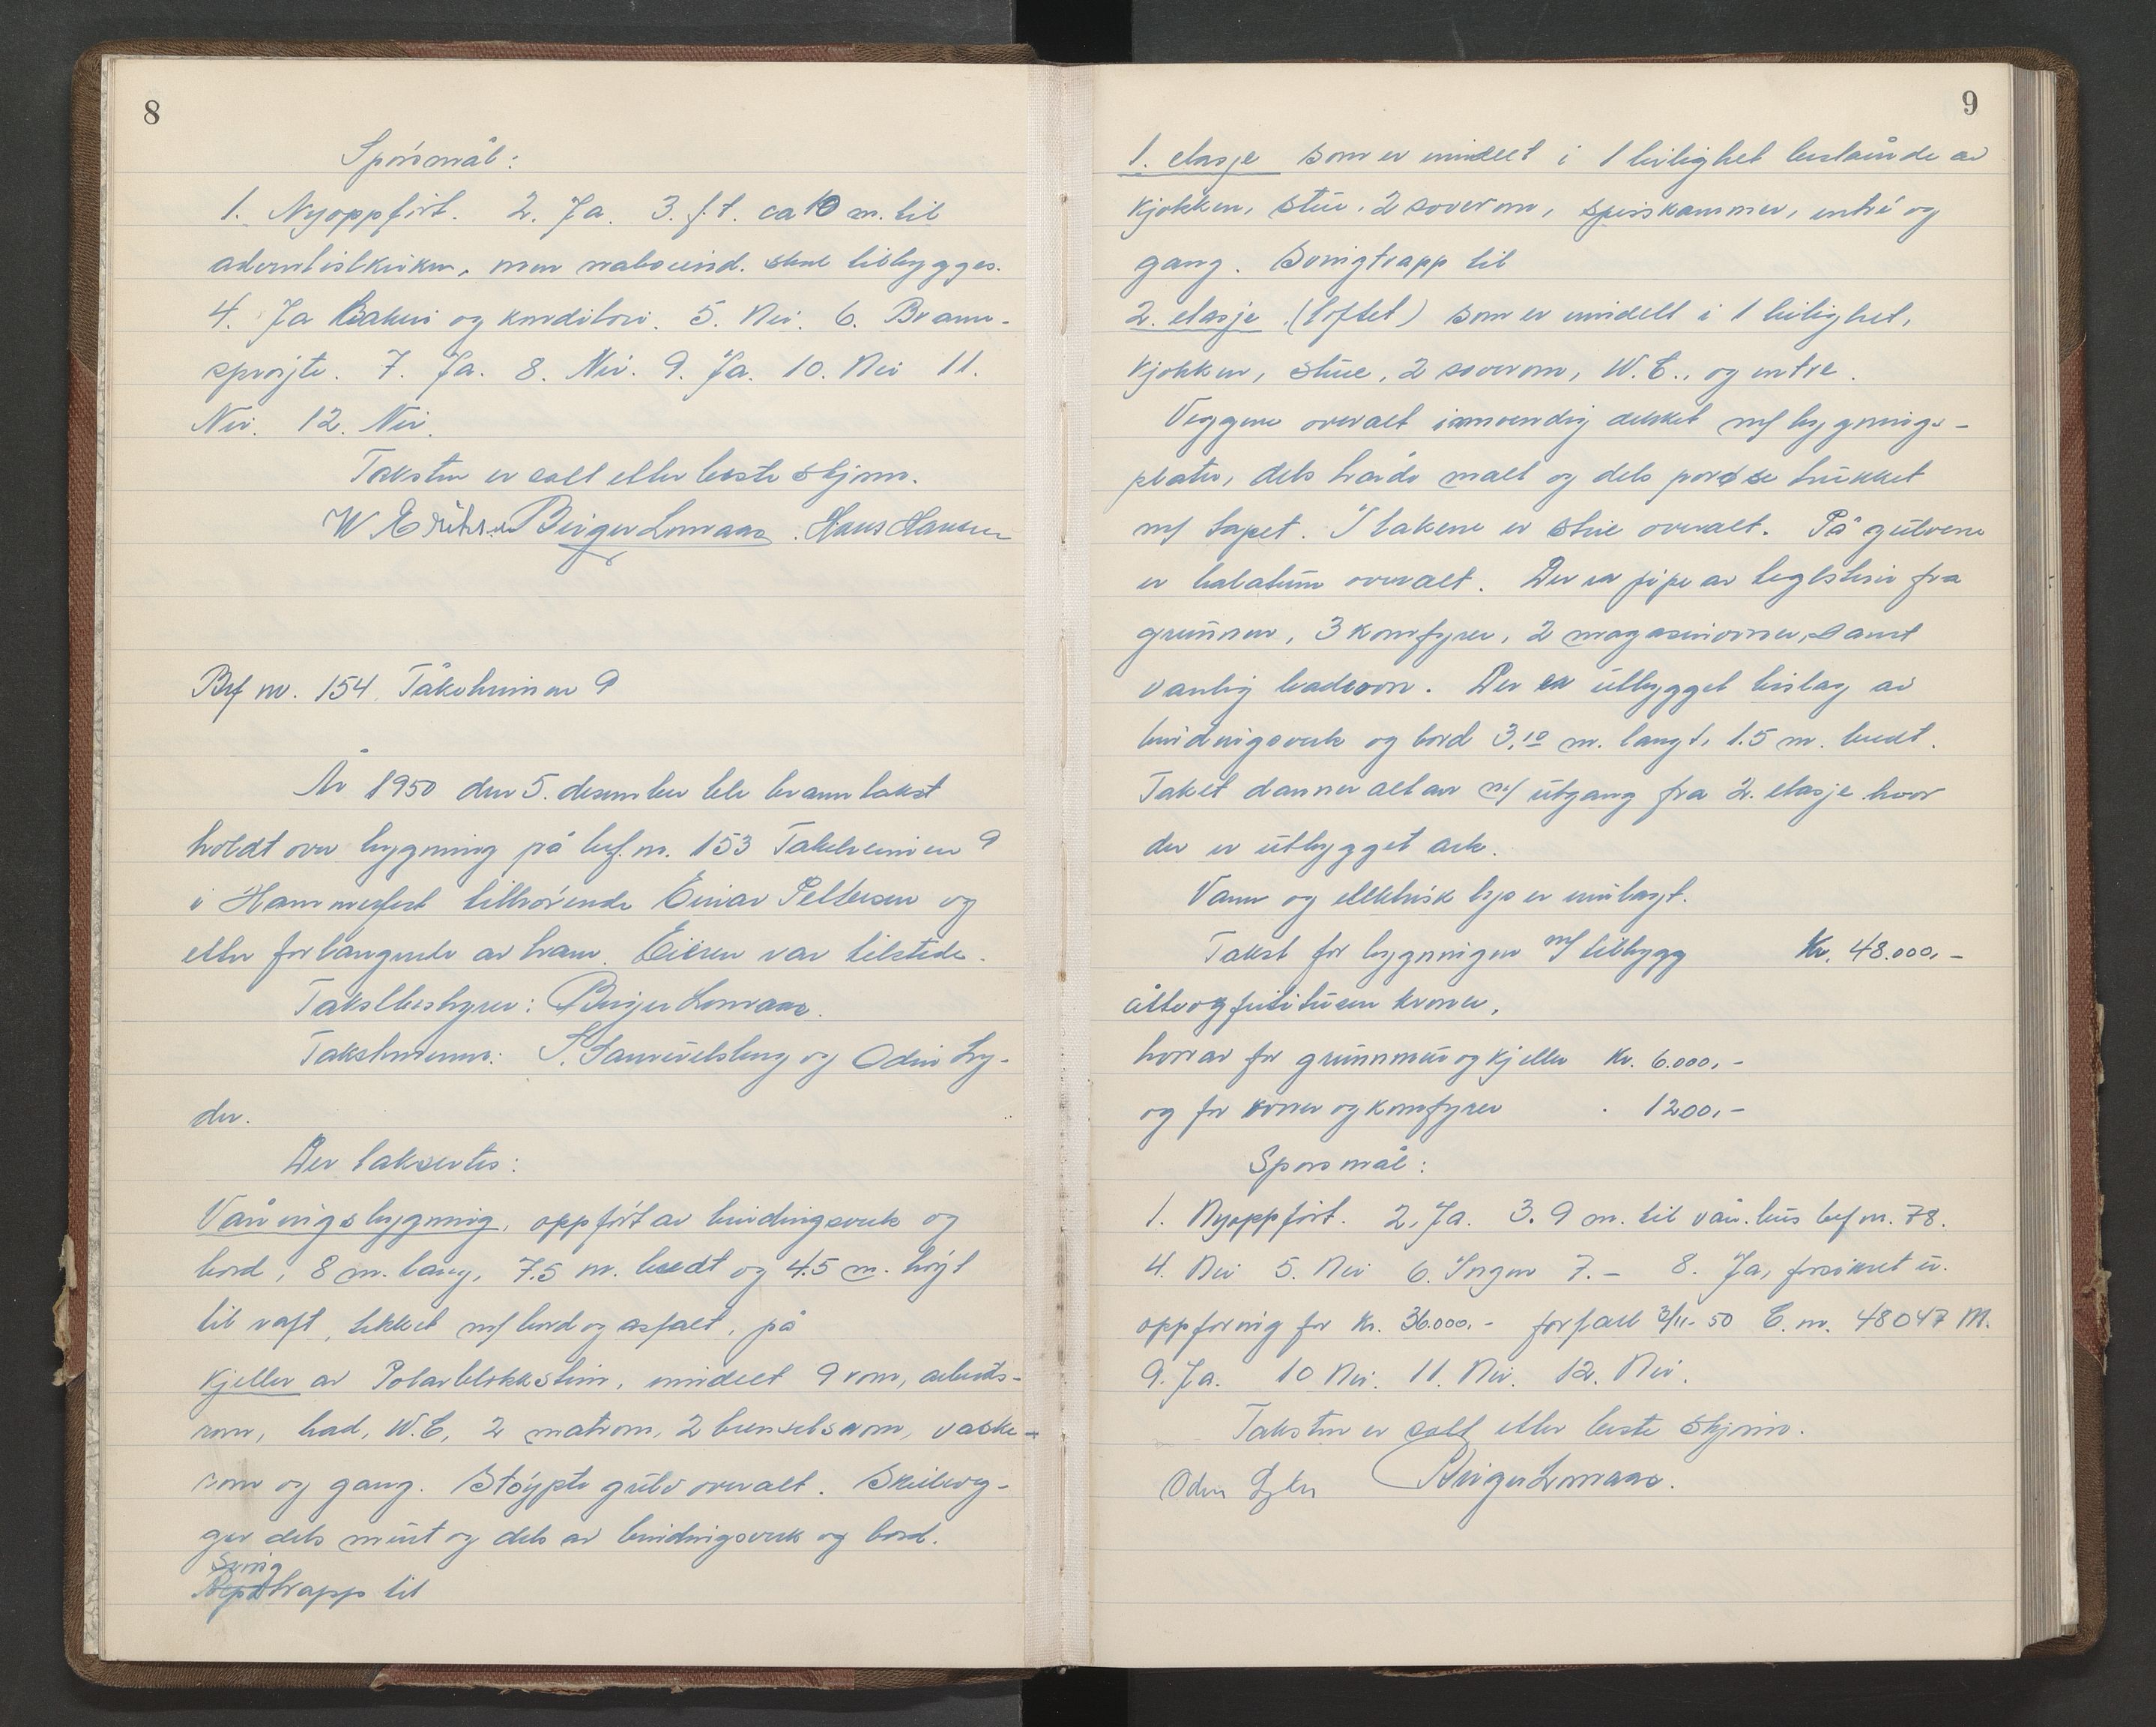 8
Spörsmål:
1. Nyoppfört. 2. Ja. 3. f.t. ca 10 m. til
adventistkirken, men naboeiend. skal tilbygges.
4. Ja Bakeri og konditori. 5. Nei. 6. Brann-
sprøjte. 7. Ja. 8. Nei. 9. Ja. 10. Nei 11.
Nei. 12. Nei.
Taksten er satt etter beste skjønn.
W Eriksen Birger Lonvaas. Hans Hansen
Brf nr. 154. Tåkeheimen 9
År 1950 den 5. desember ble branntakst
holdt over bygning på brf. nr. 153 Tåkeheimen 9
i Hammerfest tilhörende Einar Pettersen og
etter forlangende av ham. Eieren var tilstede.
Takstbestyrer: Birger Lonvaas.
Takstmenn: S. Samuelsberg og Odin Ly-
der.
Der taksertes:
Våningsbygning, oppfört av bindingsverk og
bord, 8 m. lang, 7.5 m. bredt og 4.5 m. höyt
til raft, tekket m/ bord og asfalt, på
Kjeller av Polarblokkstein, inndelt 9 rom, arbeids-
rom, bad, W.C, 2 matrom, 2 brenselsrom, vaske-
rom og gang. Stöypte gulv overalt. Skilleveg-
ger dels murt og dels av bindingsverk og bord.
Sving
trapp til
9
1. etasje som er inndelt i 1 leilighet bestående av
kjøkken, stue, 2 soverom, spiskammer, entré og
gang. Svingtrapp til
2. etasje (loftet) som er inndelt i 1 leilighet,
kjøkken, stue, 2 soverom, W.C., og entre.
Veggene overalt innvendig dekket m/ bygnings-
plater, dels hårde malt og dels porøse trukket
m/ tapet. I takene er stue overalt. På gulvene
er balatum overalt. Der er pipe av teglstein fra
grunnen, 3 komfyrer, 2 magasinovner, samt
vanlig badeovn. Der er utbygget bislag av
bindingsverk og bord 3,10 m. langt, 1.5 m. bredt.
Taket danner altan m/ utgang fra 2. etasje hvor
der er utbygget ark.
Vann og elektrisk lys er innlagt.
Takst for bygningen m/ tilbygg Kr. 48.000,-
åtteogförtitusen kroner,
hvorav for grunnmur og kjeller Kr. 6.000,-
og for ovner og komfyrer . 1200,-
Sporsmål:
1. Nyoppfört. 2. Ja. 3. 9 m. til vån. hus brf nr. 78.
4. Nei 5. Nei 6. Ingen 7. - 8. Ja, forsikret u.
oppforing for Kr. 36.000,- forfall 3/11-50 C. nr. 48047 M.
9. Ja. 10 Nei. 11. Nei. 12. Nei.
Taksten er satt etter beste skjønn.
Odin Lyder Birger Lonvaas.